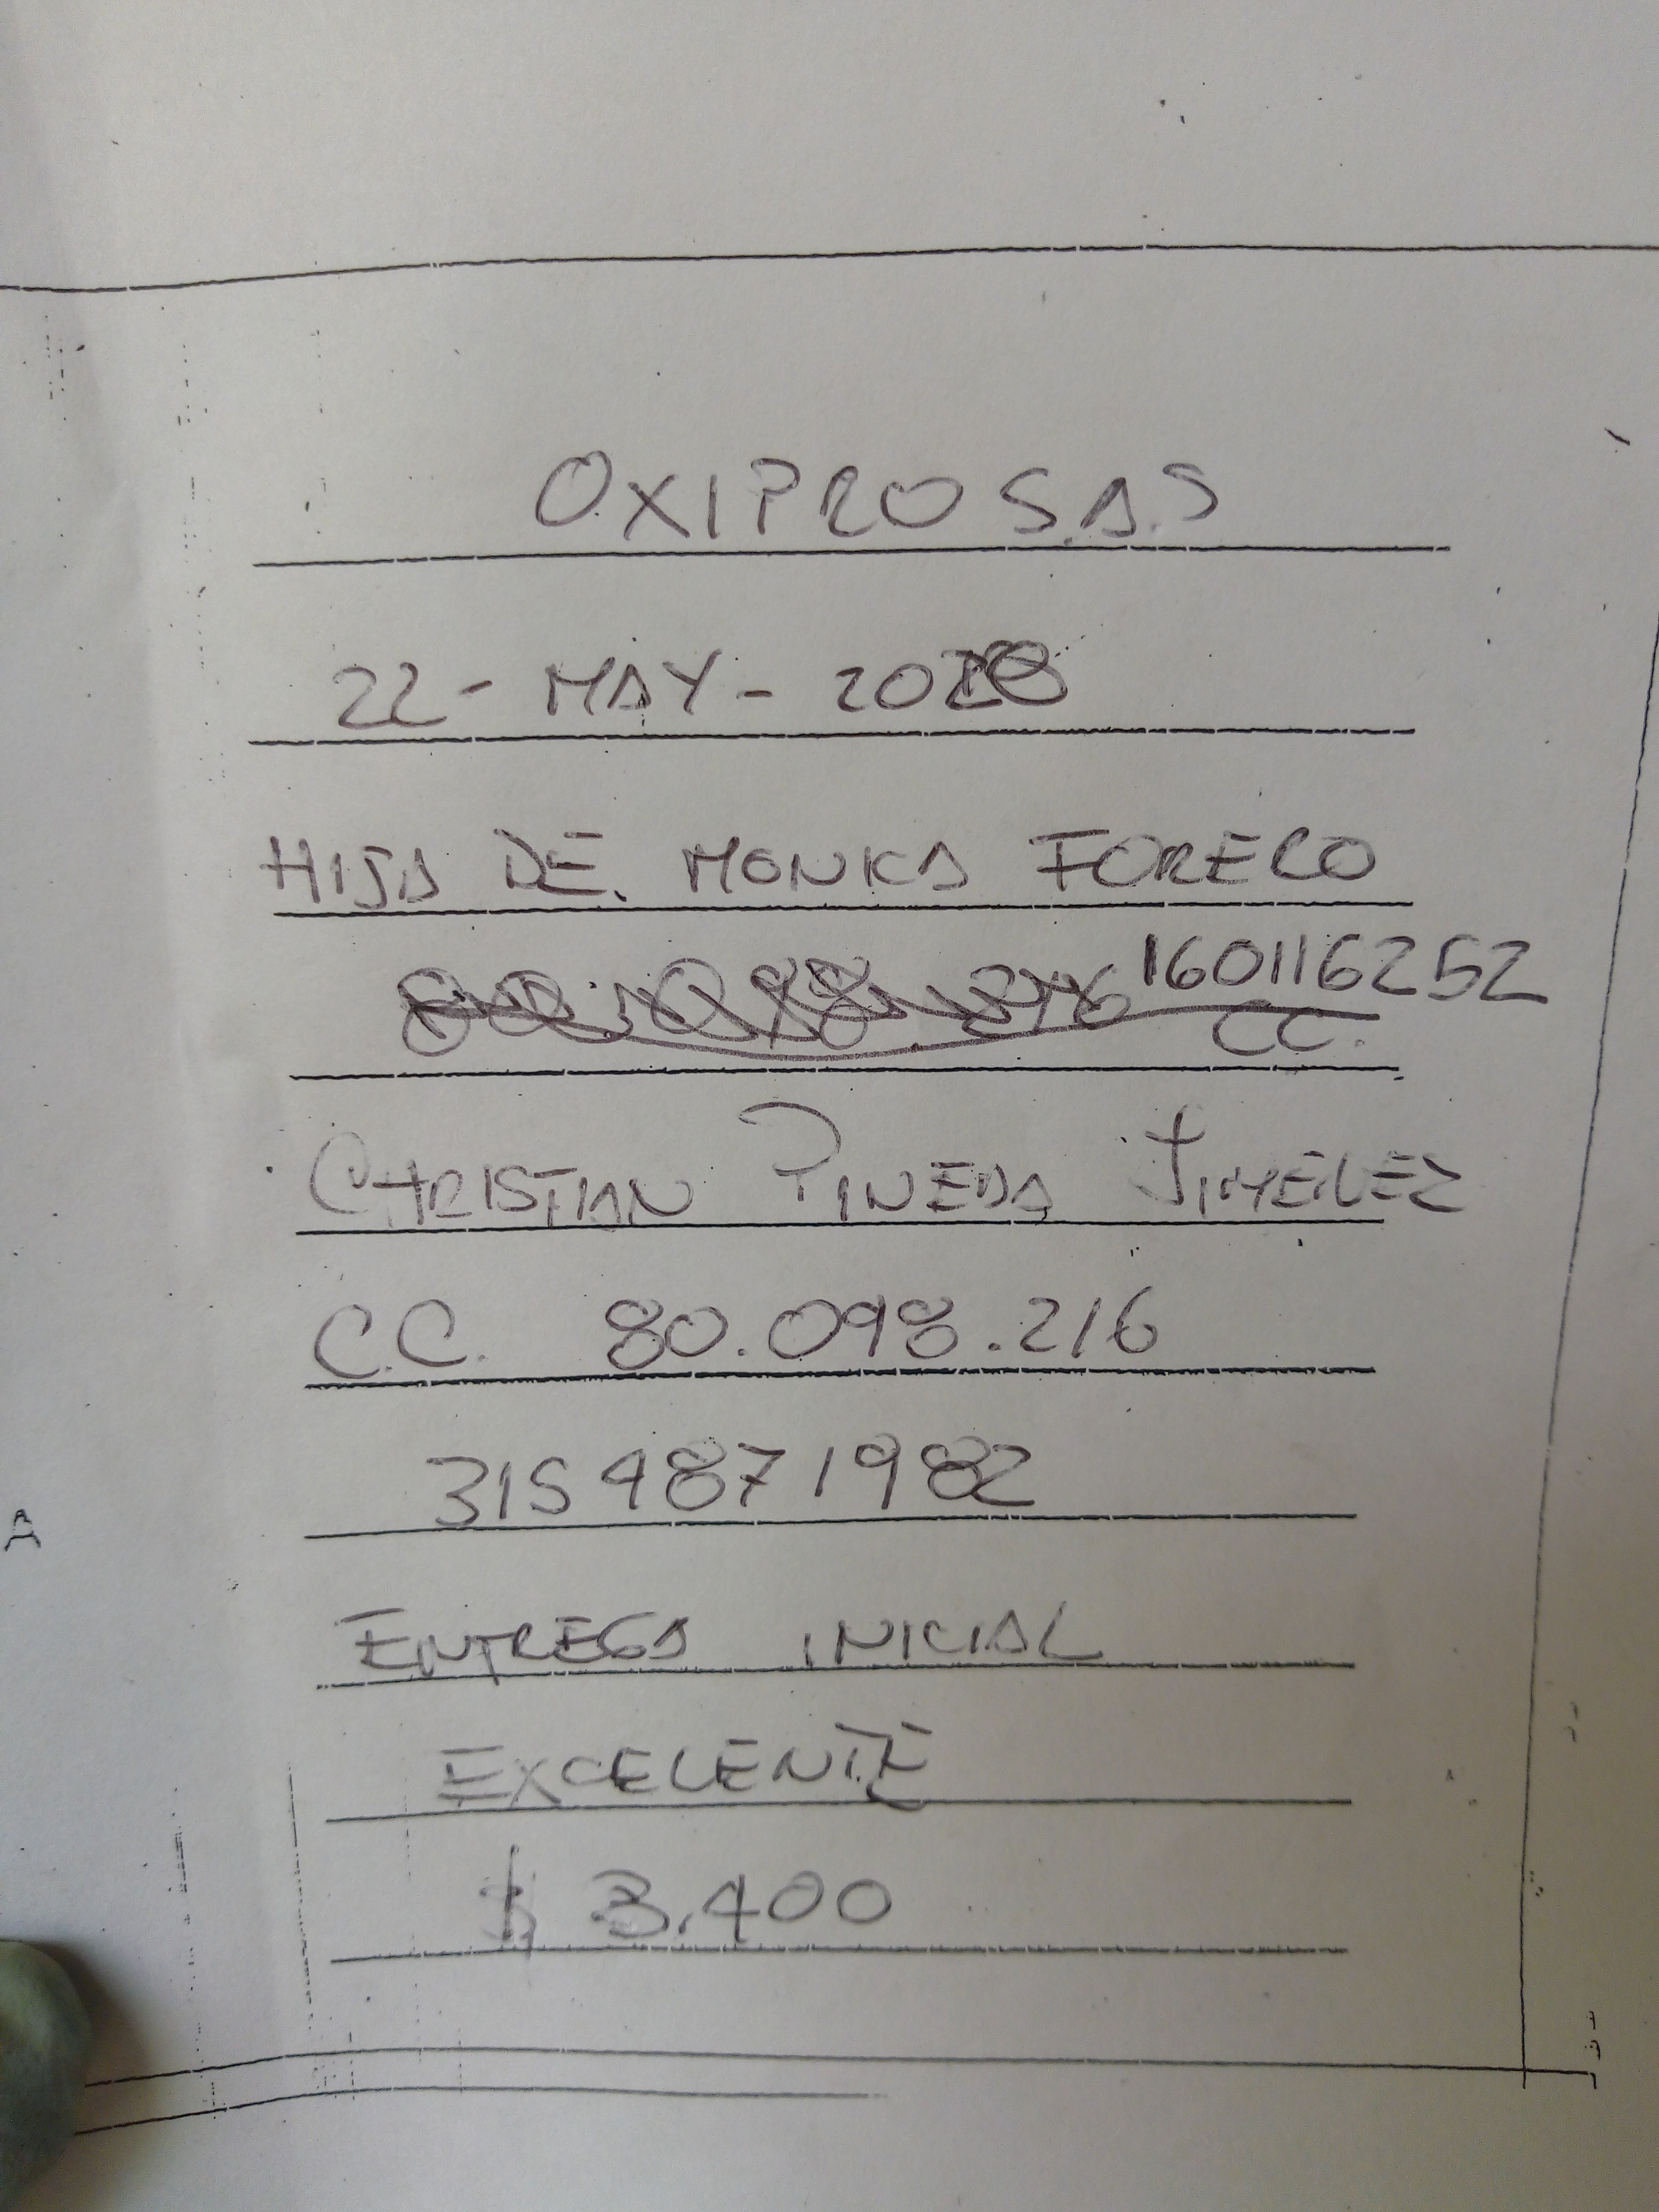 OXIPRO S.A.S
22 - MAY - 20
HIJA DE MONICA FORERO
160116252
CC.
CHRISTIAN PINEDA JIMENEZ
C.C. 80.098.216
315 4871982
ENTREGA INICIAL
EXCELENTE
$ 3.400
A